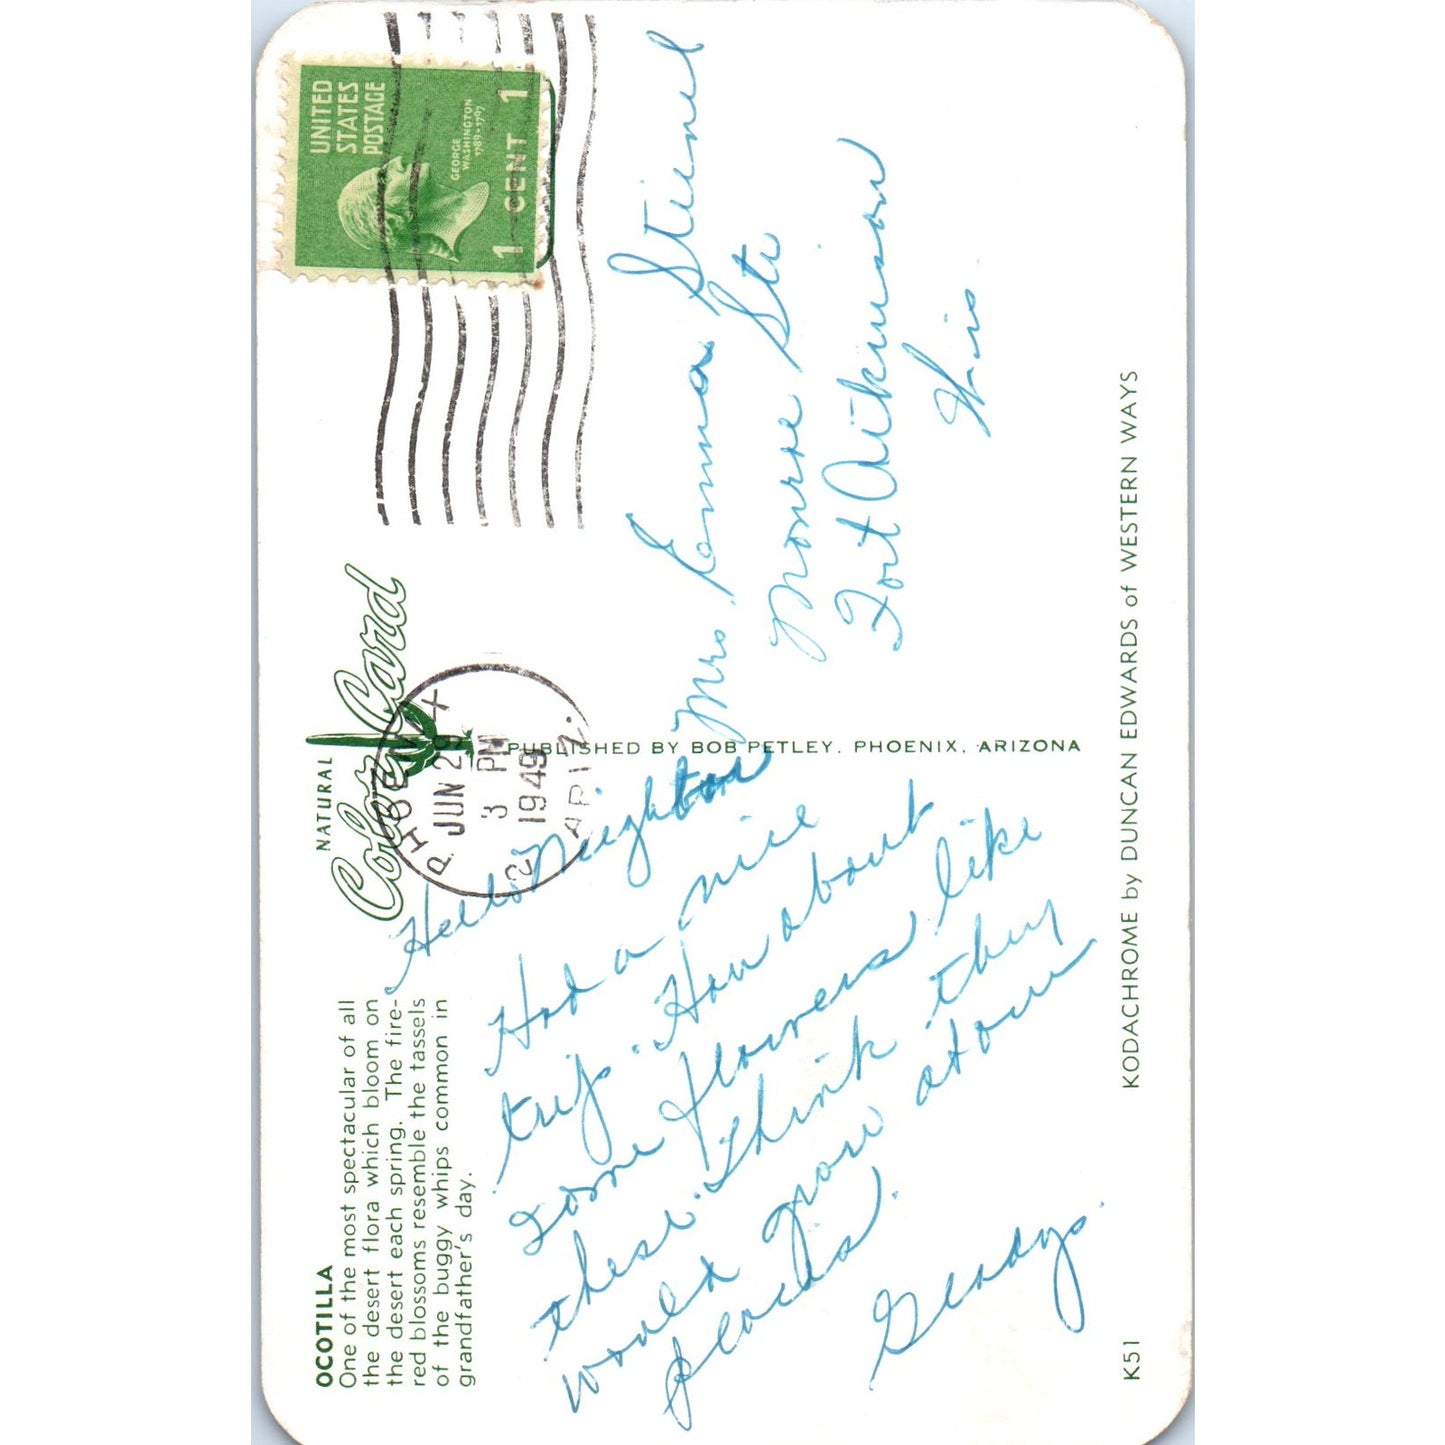 OCOTILLA
One of the most spectacular of all
the desert flora which bloom on
the desert each spring. The fire-
red blossoms resemble the tassels
of the buggy whips common in
grandfather's day.
NATURAL
Color Card
PHOENIX
JUN 29
3 PM
1949
ARIZ.
2
UNITED
STATES
POSTAGE
GEORGE
WASHINGTON
1789-1797
1 CENT 1
Hello Neighbor
Had a nice
trip. How about
some flowers like
these. Think they
would grow at our
places.
Gladys.
PUBLISHED BY BOB PETLEY, PHOENIX, ARIZONA
Mrs. Emma Stienel
Monroe St.
Fort Atkinson
Wis
K51
KODACHROME by DUNCAN EDWARDS of WESTERN WAYS